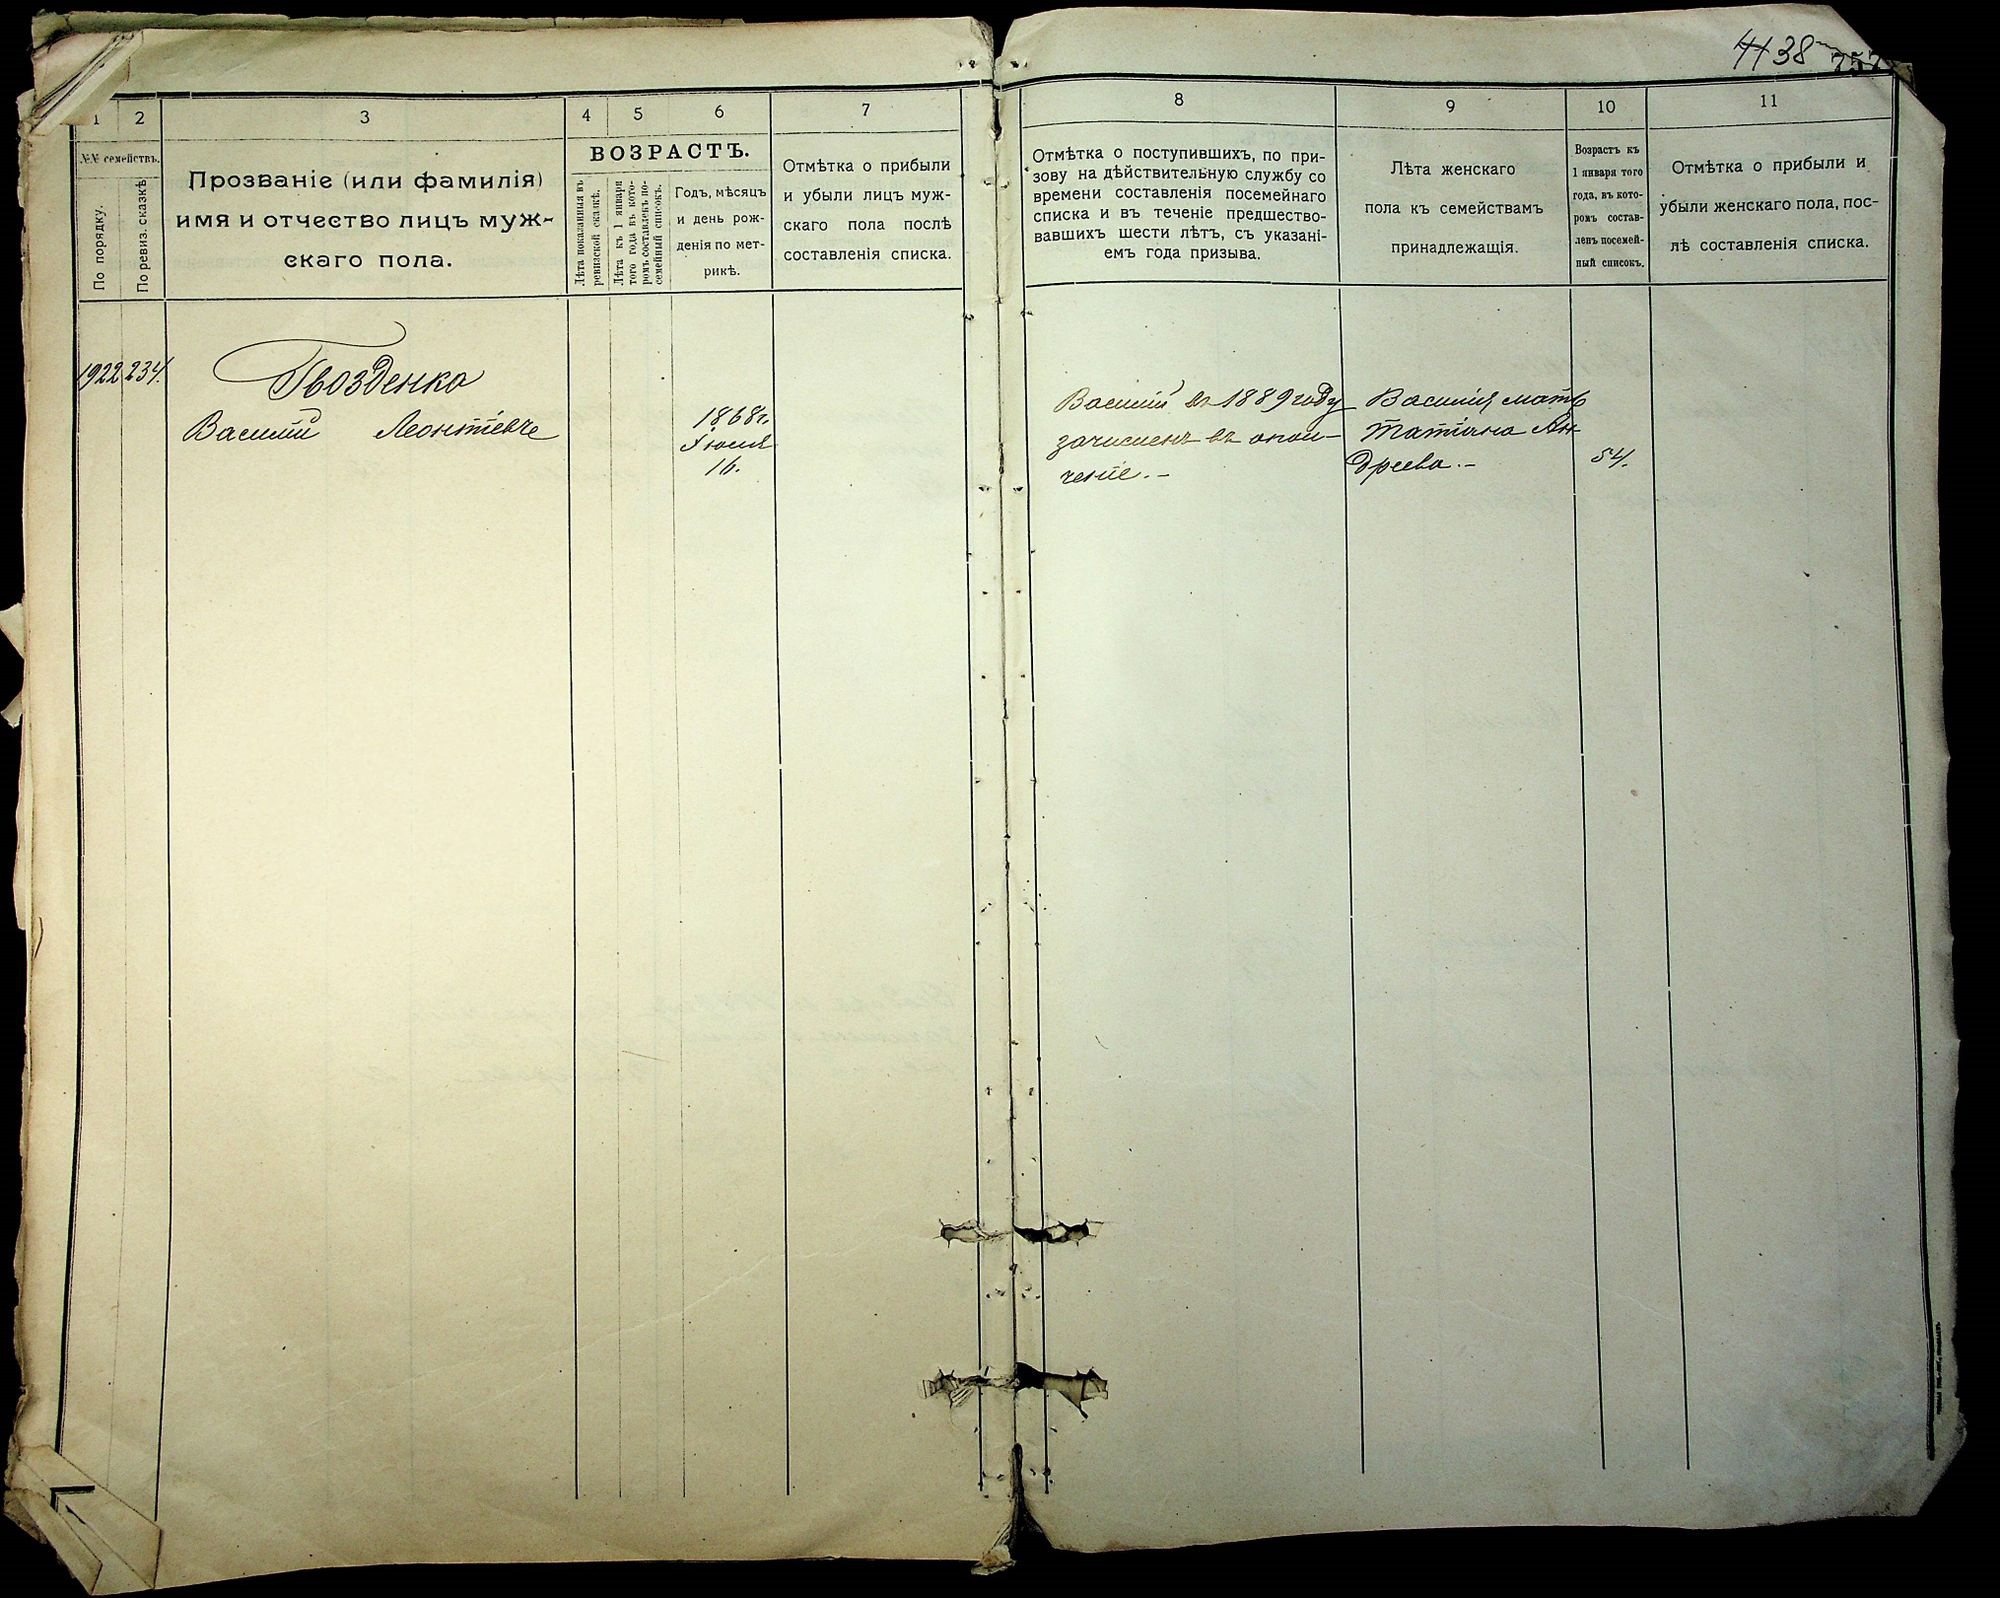 4138 757
1 2 3 4 5 6 7
№№ семействъ.
По порядку.
По ревиз. сказкѣ
Прозваніе (или фамилія)
имя и отчество лицъ муж-
скаго пола.
ВОЗРАСТЪ.
Лѣта показанныя въ
ревизской сказкѣ.
Лѣта къ 1 января
того года въ кото-
ромъ составленъ по-
семейный списокъ.
Годъ, мѣсяцъ
и день рож-
денія по мет-
рикѣ.
Отмѣтка о прибыли
и убыли лицъ муж-
скаго пола послѣ
составленія списка.
8 9 10 11
Отмѣтка о поступившихъ, по при-
зову на дѣйствительную службу со
времени составленія посемейнаго
списка и въ теченіе предшество-
вавшихъ шести лѣтъ, съ указані-
емъ года призыва.
Лѣта женскаго
пола къ семействамъ
принадлежащія.
Возрастъ къ
1 января того
года, въ кото-
ромъ состав-
ленъ посемей-
ный списокъ.
Отмѣтка о прибыли и
убыли женскаго пола, пос-
лѣ составленія списка.
1922 234.
Гвозденко
Василій Леонтіевъ
1868 г.
Іюля
16.
Василій въ 1889 году
зачисленъ въ опол-
ченіе.-
Василія мать
Татіана Ан-
дреева.-
54.